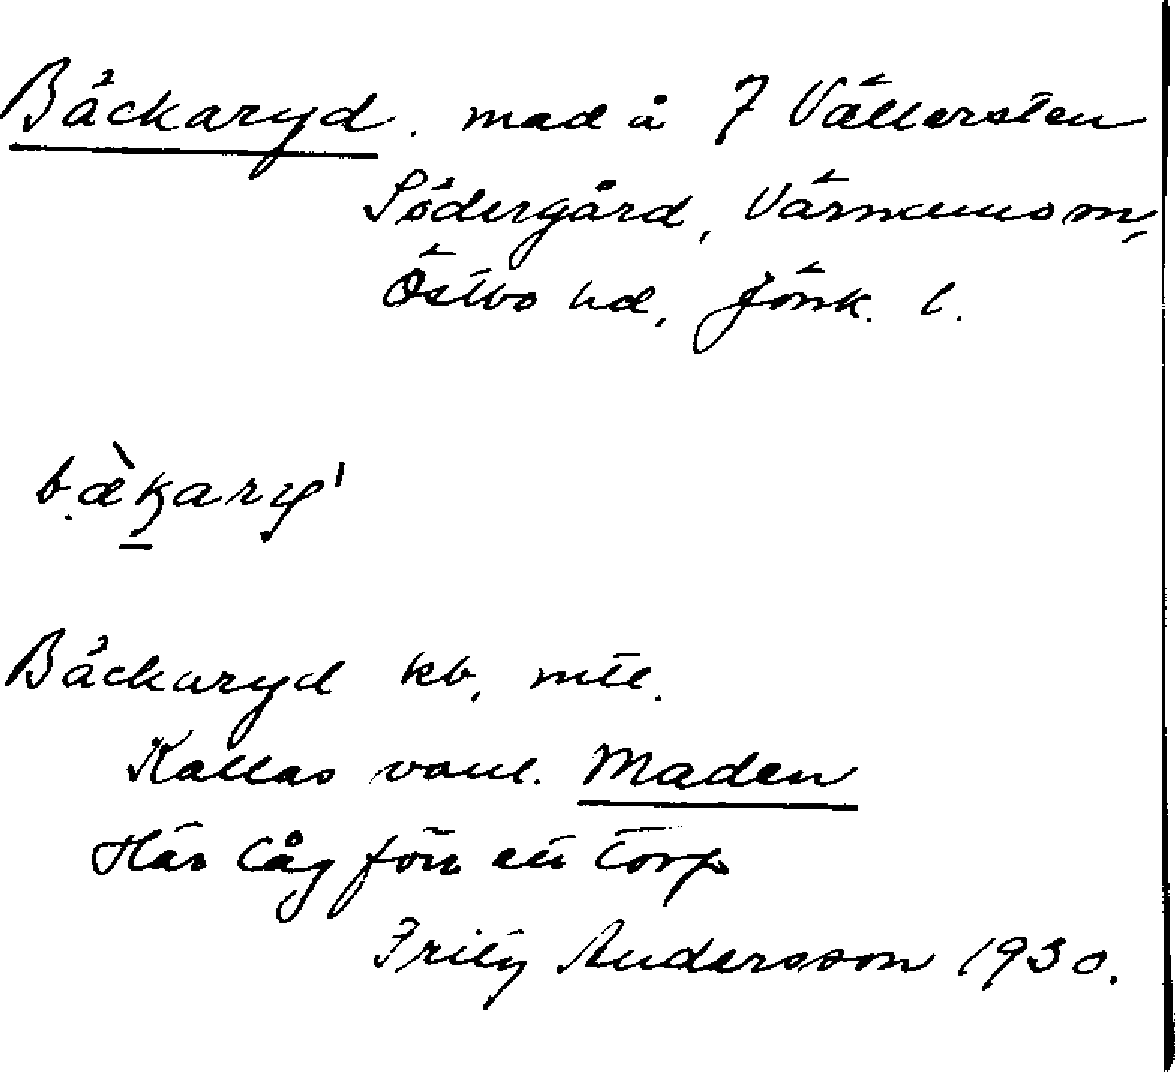 Bäckaryd. mad å 7 Vällersten
Södergård, Värnamo sn,
Östbo hd, Jönk. l.
bæ̀kary
Bäckaryd kb, mtl.
Kallas vanl. Maden
Här låg förr ett torp
Fritz Andersson 1930.